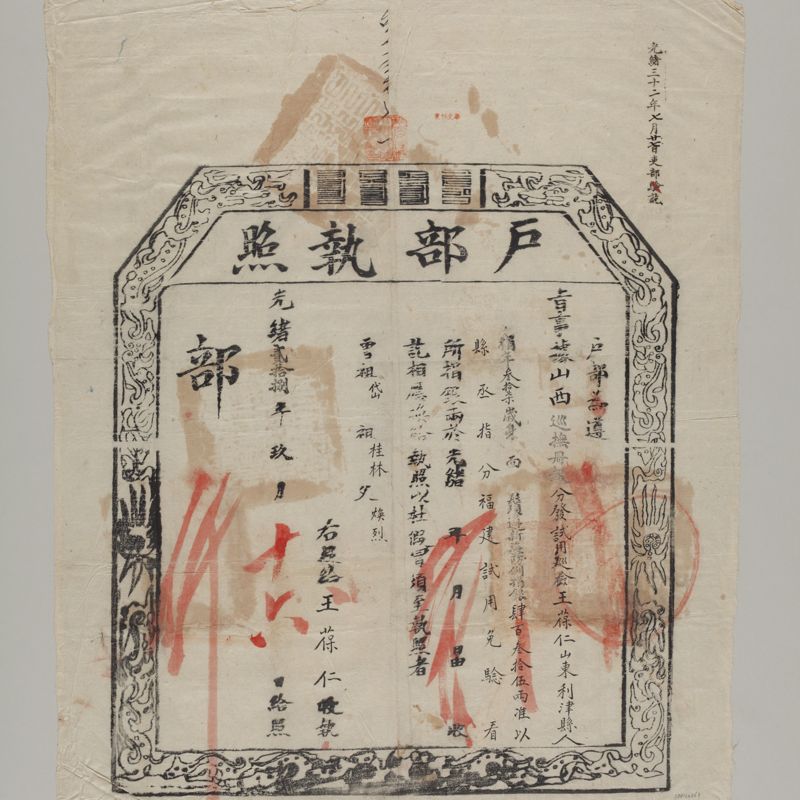 光緒三十二年七月廿日吏部驗訖
戶部執照
戶部為遵
旨事據山西巡撫冊分發試用巡檢王葆仁山東利津縣人
捐年叁拾柒歲身 面 鬚遵新海防例捐銀肆百叁拾伍兩准以
縣丞指分福建試用免驗看
所捐銀兩於光緒 年 月 日收
訖相應換給執照以杜假冒須至執照者
曾祖岱 祖桂林 父煥烈
右照給王葆仁收執
光緒貳拾捌年玖月十六日給照
部